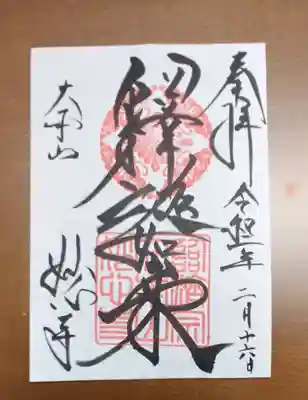 奉拝
令和二年
二月十六日
釋迦如来
大本山
妙心寺